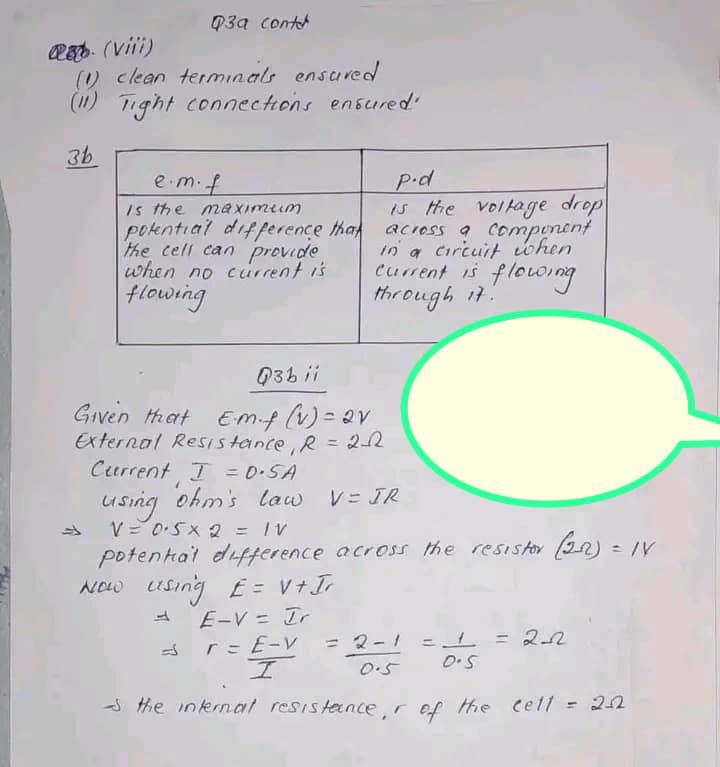 Q3a contd
(viii)
(i) clean terminals ensured
(ii) Tight connections ensured.
3b
e.m.f
is the maximum
potential difference that
the cell can provide
when no current is
flowing
p.d
is the voltage drop
across a component
in a circuit when
current is flowing
through it.
Q3b ii
Given that E.m.f (V) = 2V
External Resistance, R = 2Ω
Current, I = 0.5A
using ohm's law V = IR
⇒ V = 0.5 x 2 = 1V
potential difference across the resistor (2Ω) = 1V
Now using E = V + Ir
⇒ E-V = Ir
⇒ r = E-V/I = 2-1/0.5 = 1/0.5 = 2Ω
⇒ the internal resistance, r of the cell = 2Ω